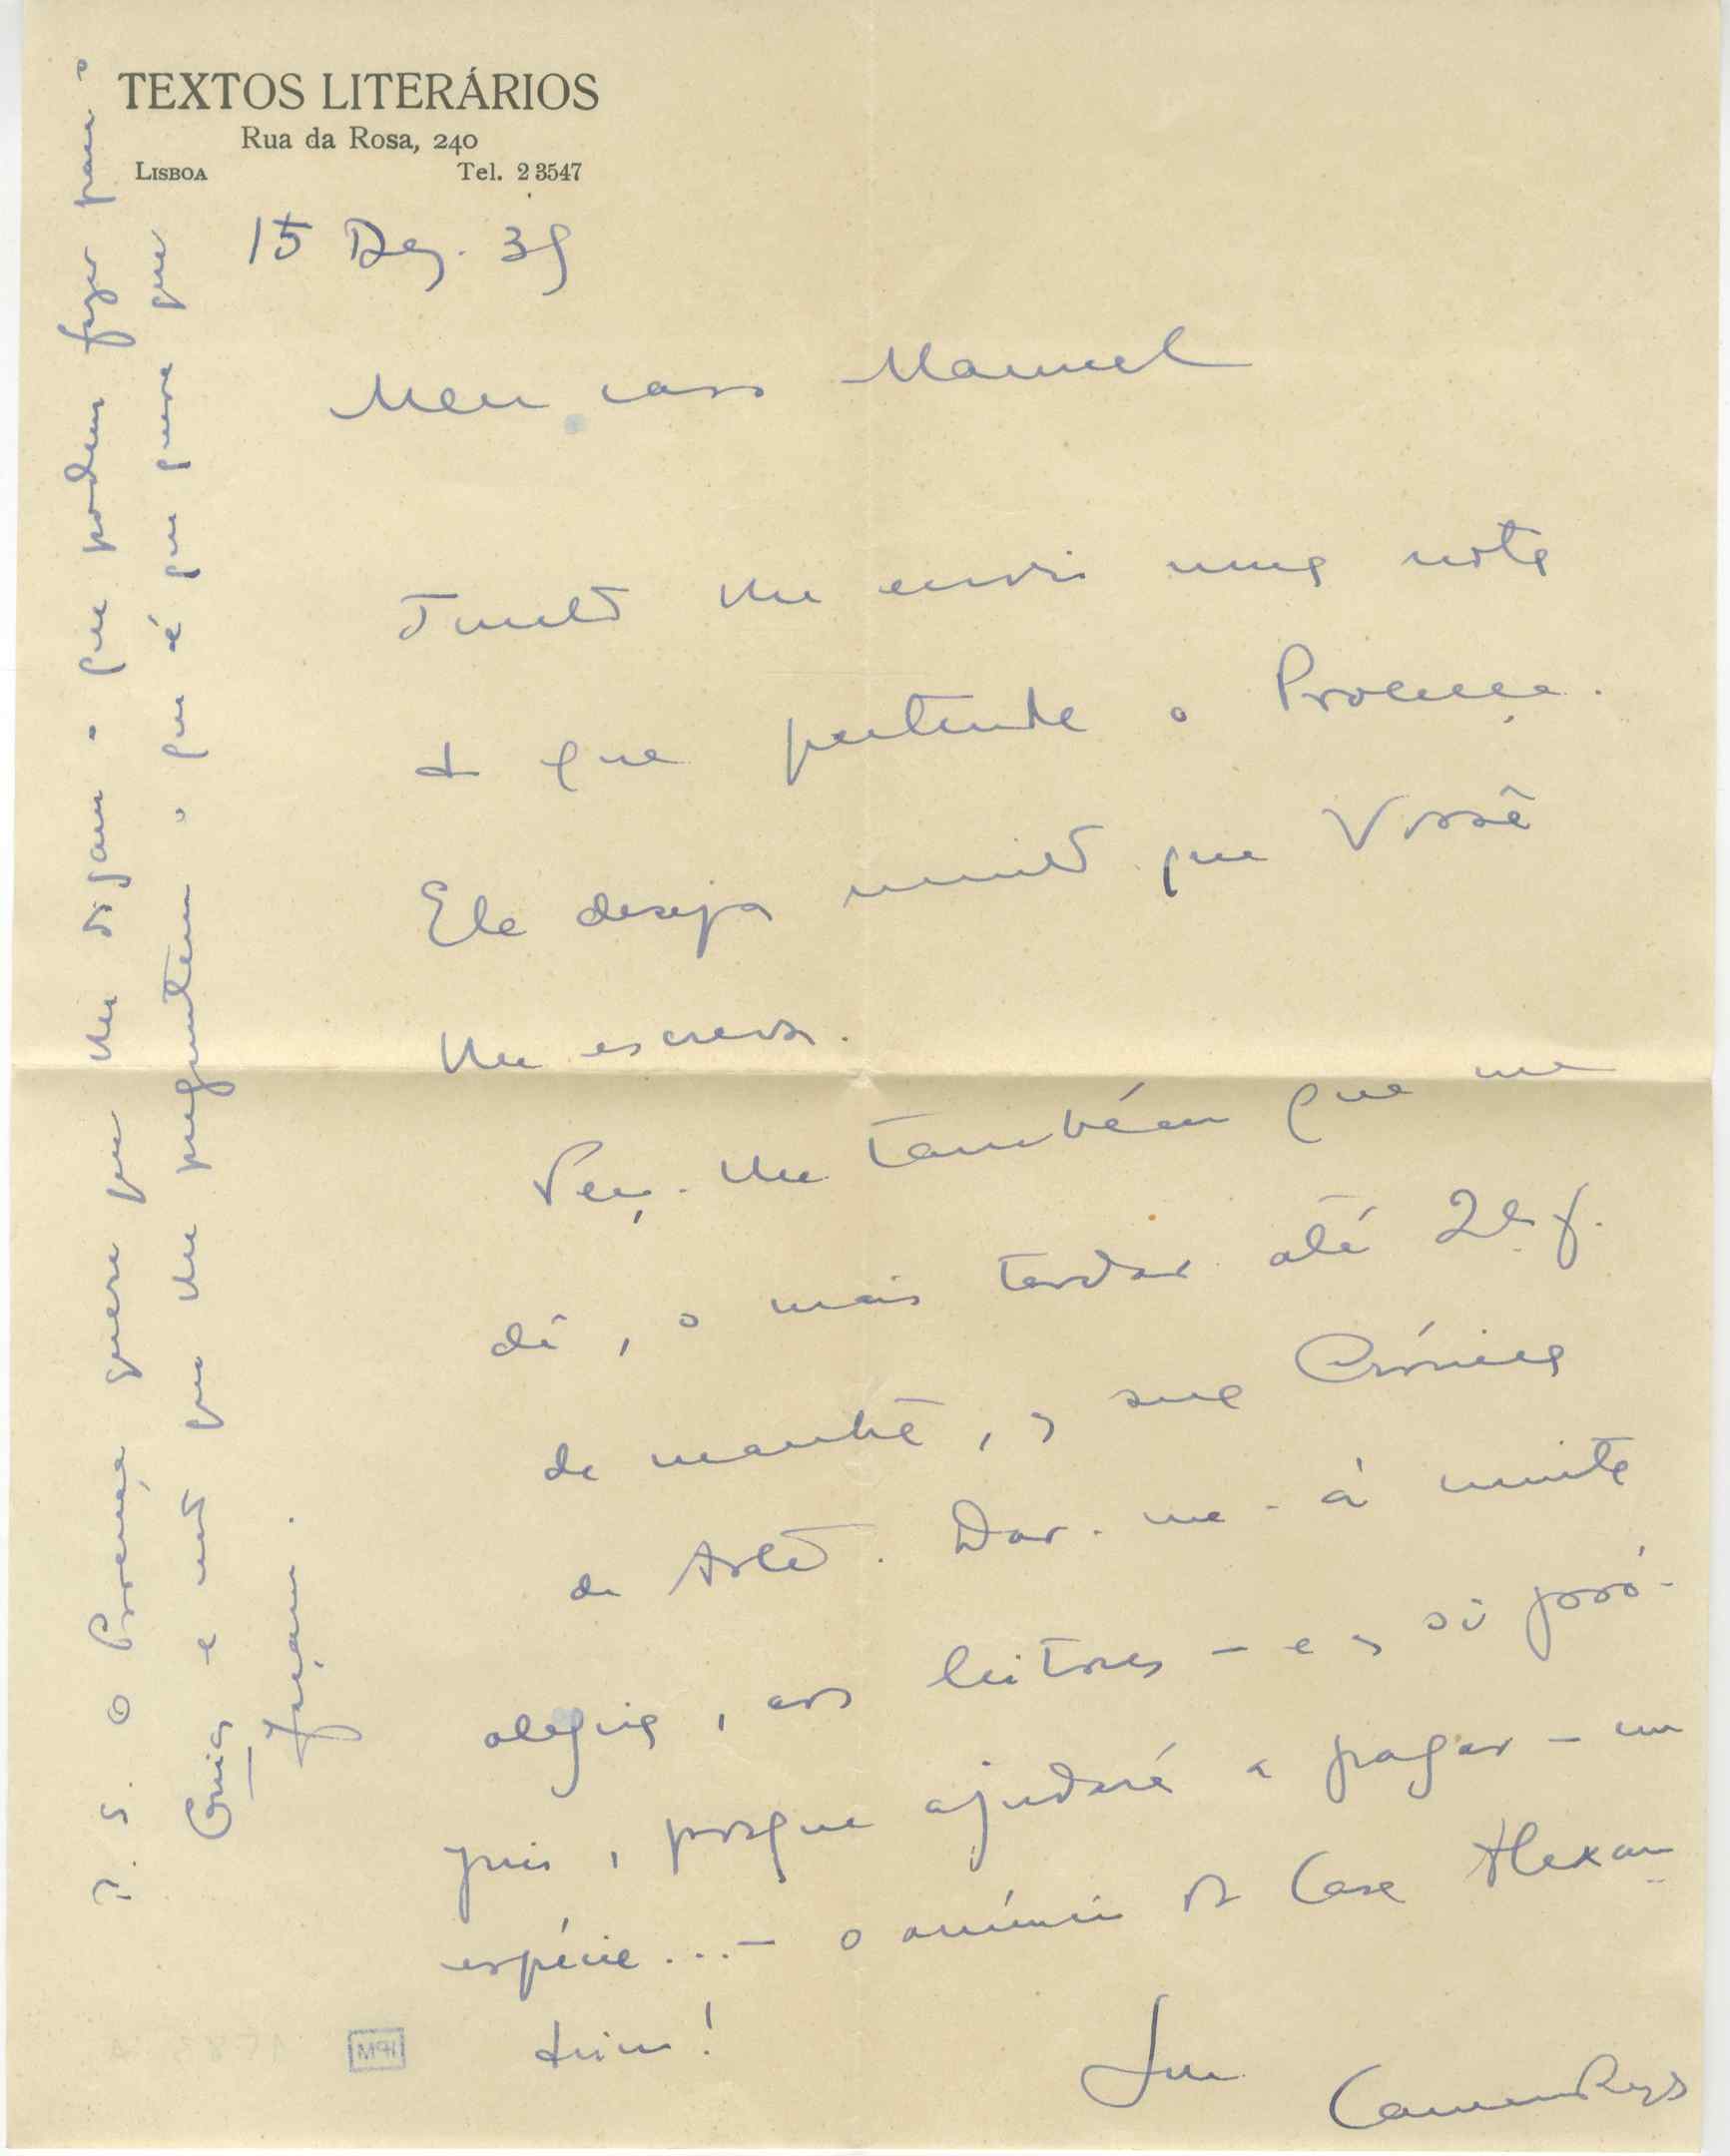 TEXTOS LITERÁRIOS
Rua da Rosa, 240
LISBOA Tel. 2 3547
15 Dez. 39
Meu caro Manuel
Junto lhe envio uma nota
do que pretende o Proença.
Ele deseja muito que Você
lhe escreva.
Peço-lhe também que me
dê, o mais tardar até 2ª f.
de manhã, a sua Crónica
de Arte. Dar-me-á muita
alegria, aos leitores – e a si pró-
prio, porque ajudará a pagar – em
espécie...– o anúncio da Casa Alexan-
drino!
Seu
Câmara Reys
P.S. O Proença quere que lhe digam o que podem fazer para o
Guia e não que lhe preguntem o que é que quere que
façam.
IPM